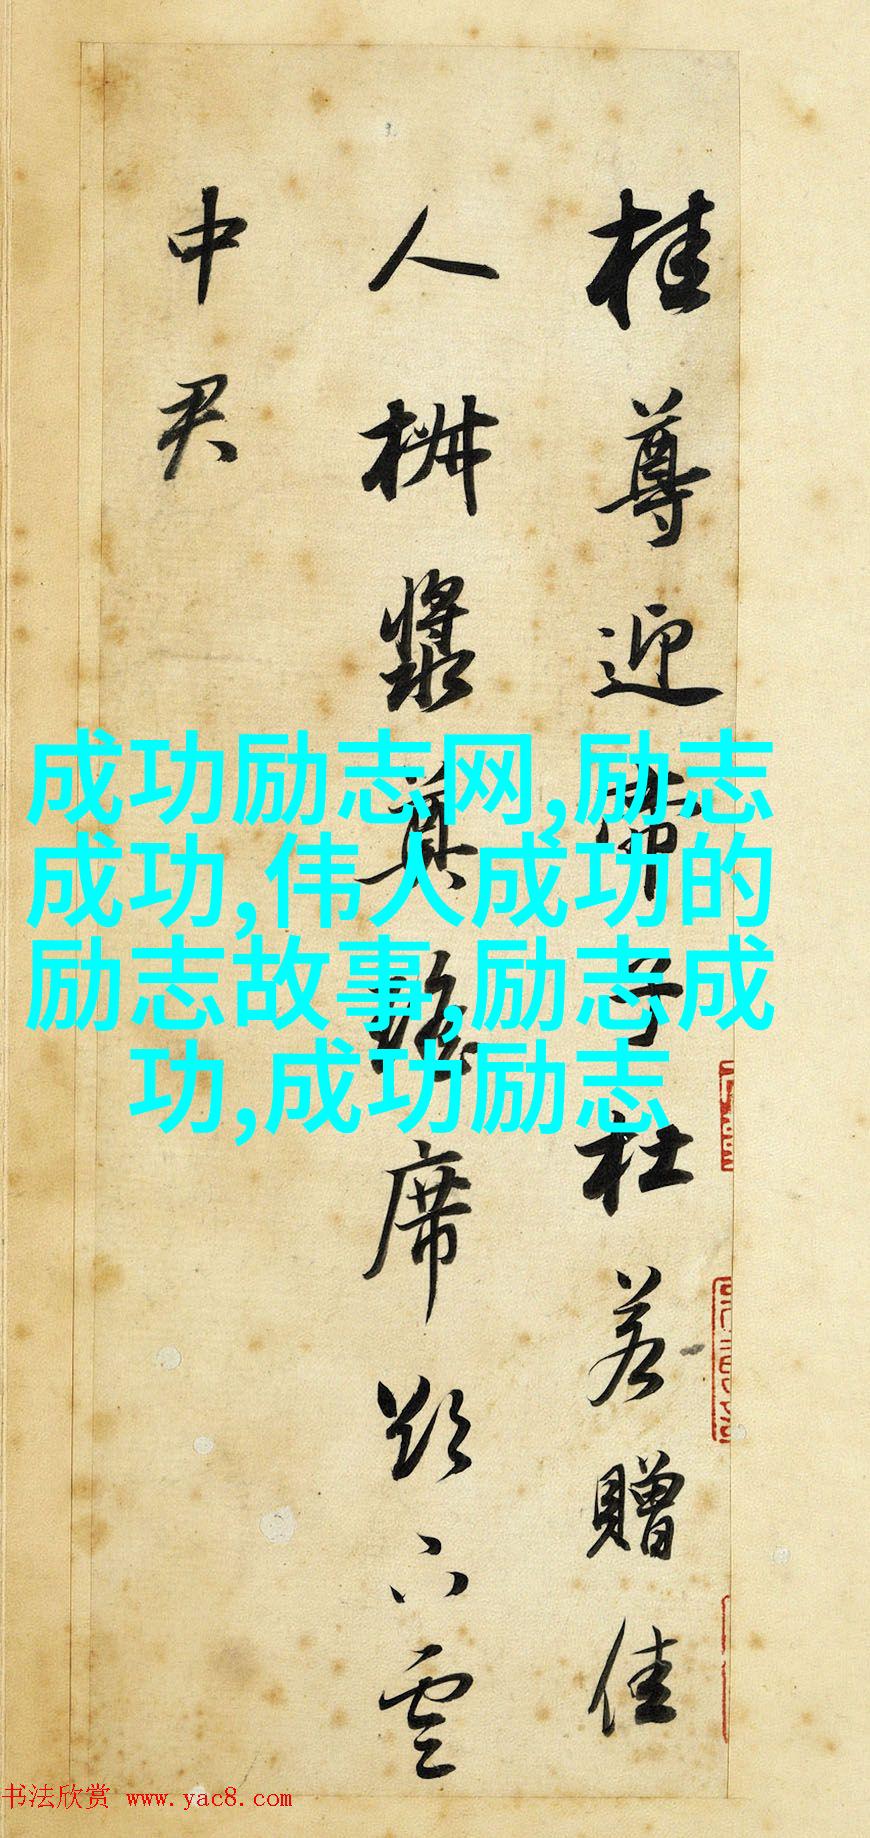 桂尊迎帝子杜若贈佳
人椒漿奠瑤席欲下雲
中君
成功励志网,励志
成功,伟人成功的
励志故事,励志成
功,成功励志
书法欣赏 www.yac8.com